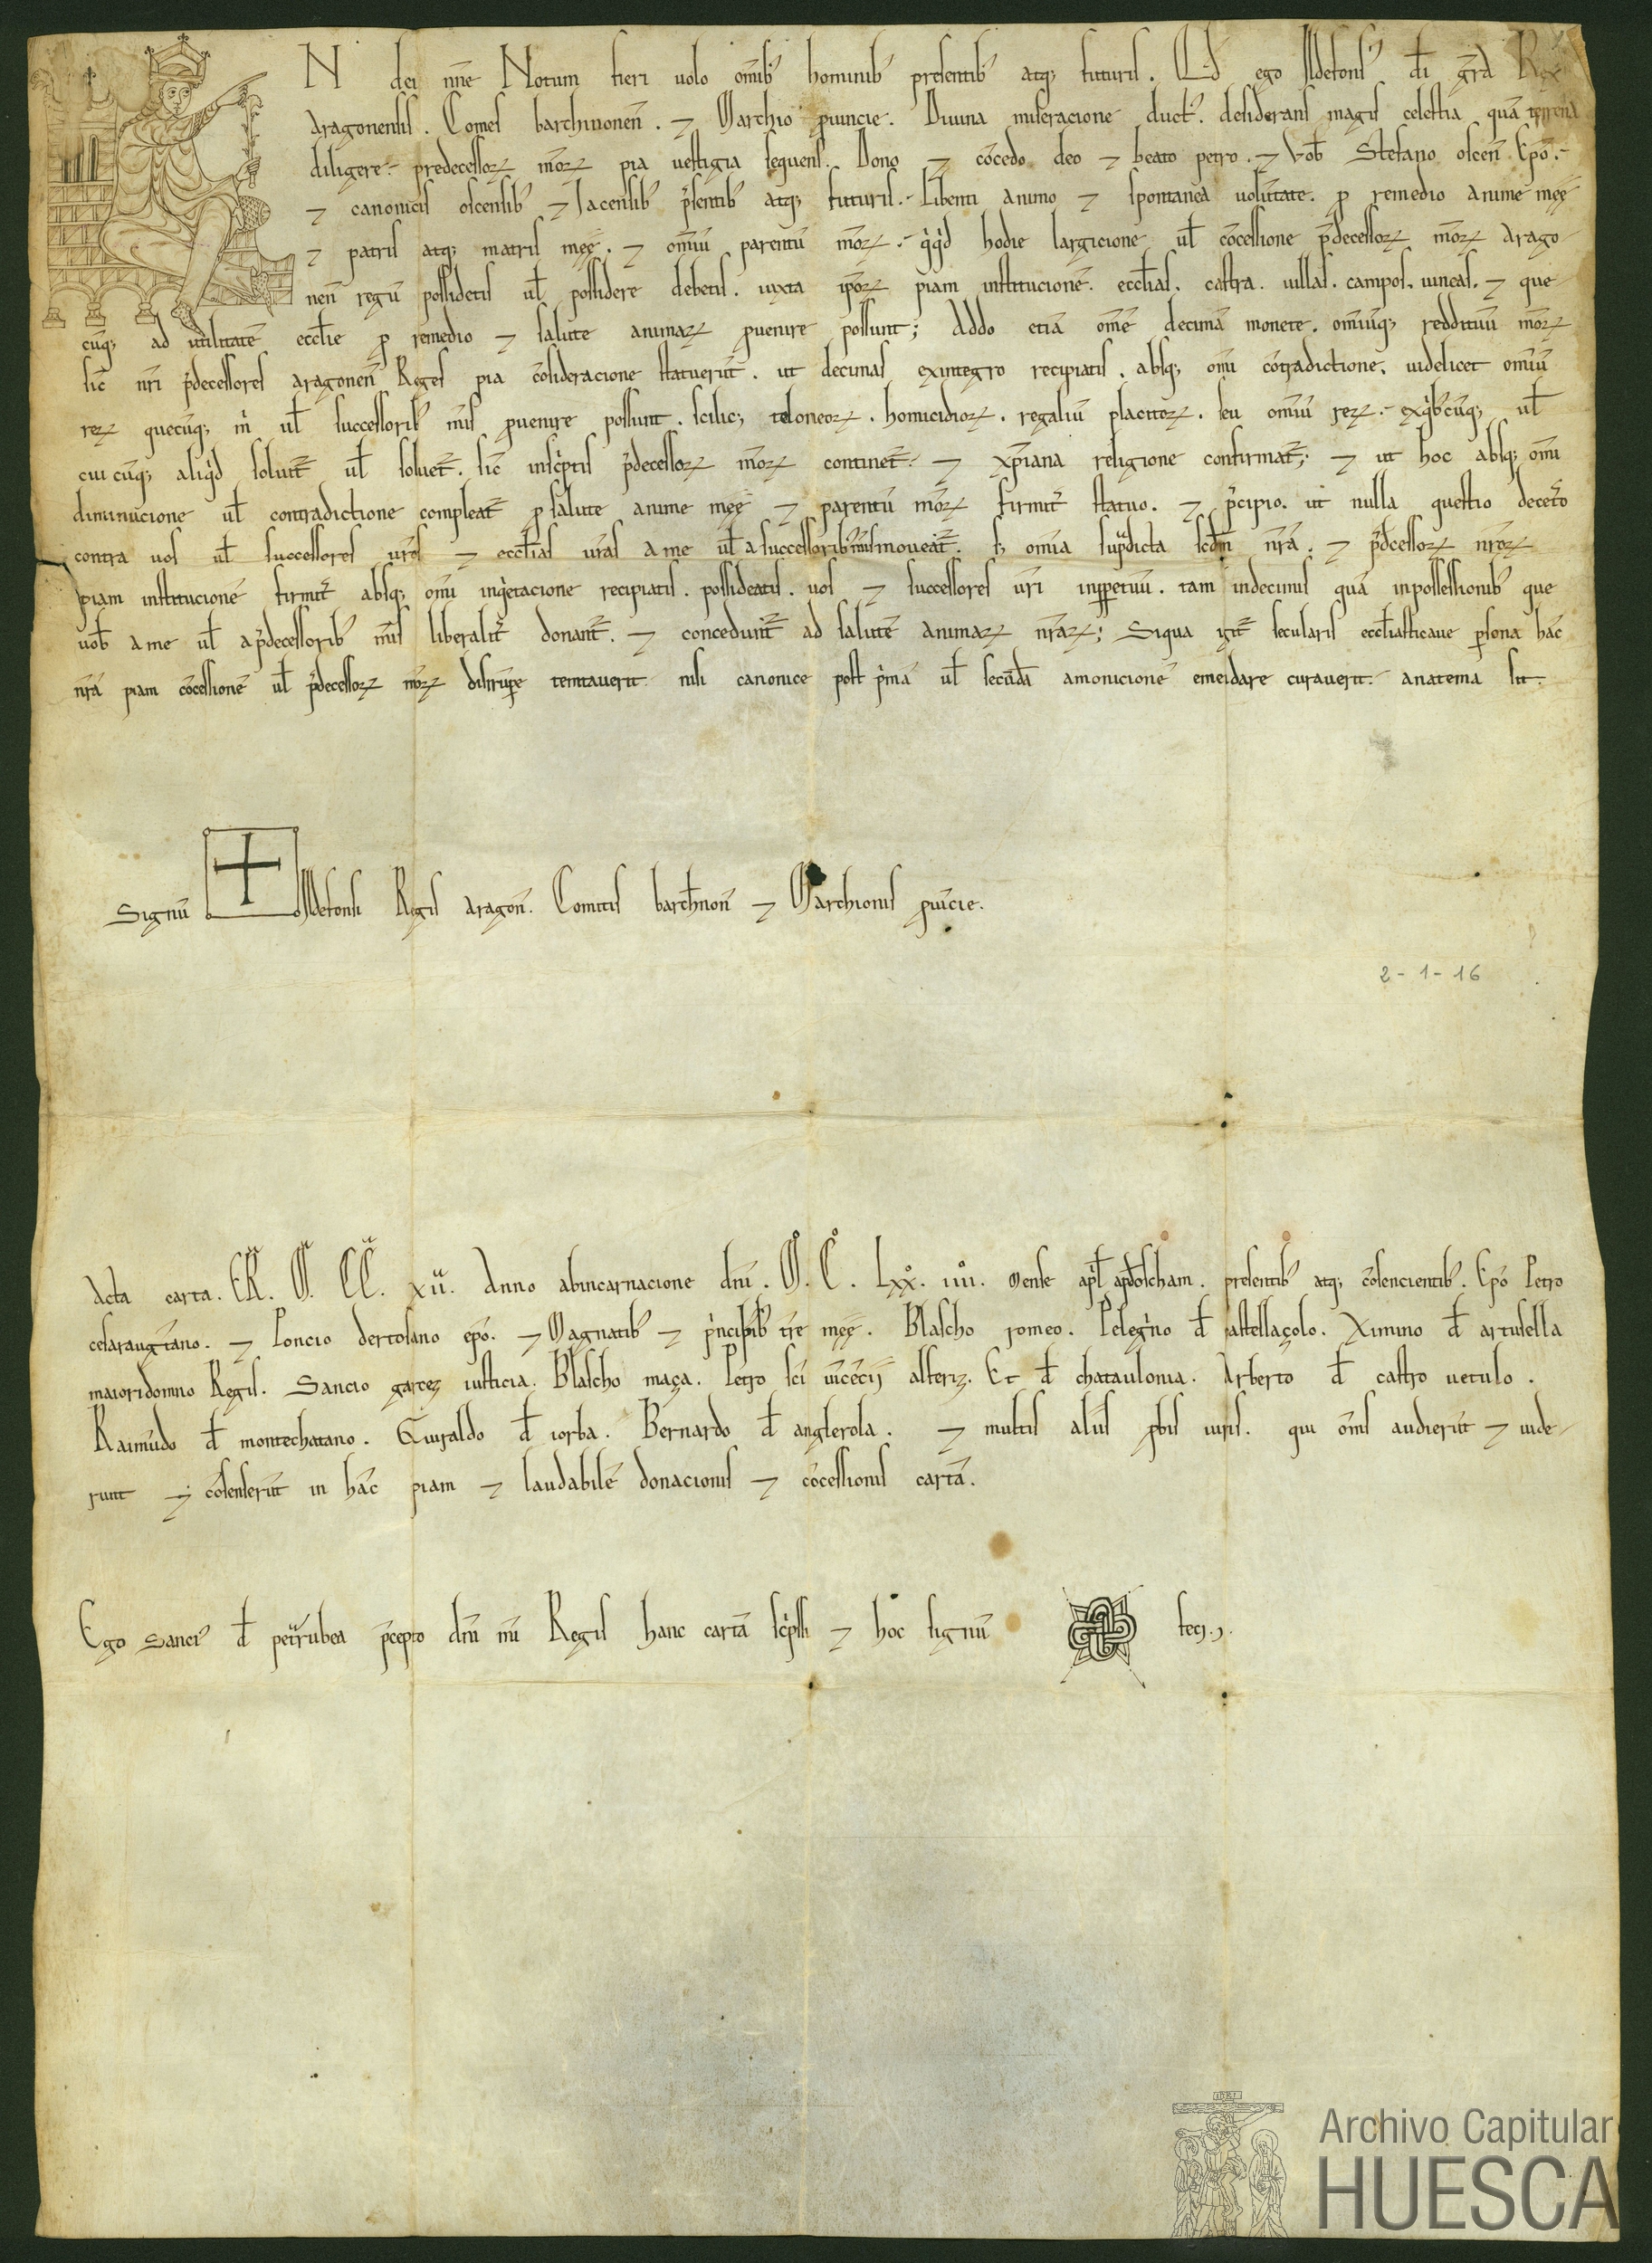 N dei nn̄e Notum fieri uolo om̄ib; hominib; presentib; atq; futuris. Q̄d ego Ildefons' d̄i gr̄a Rex
Aragonensis. Comes barchinonen̄. ⁊ Marchio ꝓuincie. Diuina miseracione duct'. desiderans magis celestia quā terrena
diligere. predecessoꝝ meoꝝ pia uestigia sequens. Dono ⁊ cōcedo deo ⁊ beato petro. ⁊ Vob̄ Stefano oscen̄ Ep̄o.
⁊ canonicis oscensib; ⁊ Iacensib; p̄sentib; atq; futuris. Libenti animo ⁊ spontanea uolūtate. ꝓ remedio anime meę
⁊ patris atq; matris meę. ⁊ om̄iū parentū meoꝝ. q̇q̇d hodie largicione ul̄ cōcessione p̄decessoꝝ meoꝝ Arago
nen̄ regū possidetis ul̄ possidere debetis. iuxta ip̄oꝝ piam institucionē. eccl̄ias. castra. uillas. campos. uineas. ⁊ que
cūq; ad utilitatē eccl̄ie ꝓ remedio ⁊ salute animaꝝ ꝓuenire possunt; Addo etiā om̄e decimā monete. om̄iūq; reddituū meoꝝ
sic̄ nr̄i p̄decessores aragonen̄ Reges pia cōsideracione statuerūt. ut decimas exintegro recipiatis. absq; om̄i cōtradictione. uidelicet om̄iū
reꝝ quecūq; m̄ ul̄ successorib; meis ꝓuenire possunt. scilic; teloneoꝝ. homicidioꝝ. regaliū placitoꝝ. seu om̄iū reꝝ. exq̇b;cūq; ul̄
cui cūq; aliq̇d soluit̄ ul̄ soluet̄. sic̄ inscͥptis p̄decessoꝝ meoꝝ continet̄. ⁊ xp̄iana religione confirmat̄; ⁊ ut hoc absq; om̄i
diminucione ul̄ contradictione compleat̄ ꝓ salute anime meę ⁊ parentū meoꝝ firmit̄ statuo. ⁊ p̄cipio. ut nulla questio decet̄o
contra uos ul̄ successores ur̄os ⁊ eccl̄ias ur̄as a me ul̄ a successorib; meis moueat̄. s; omia sup̄dicta scd̄m nr̄a. ⁊ p̄dcessoꝝ nr̄oꝝ
piam institucionē firmit̄ absq; om̄i inq̇etacione recipiatis. possideatis. uos ⁊ successores ur̄i inꝑpetuū. tam indecimis quā inpossessionib; que
uob̄ a me ul̄ ap̄decessorib; meis liberalit̄ donant̄. ⁊ concedunt̄ ad salutē animaꝝ nr̄aꝝ; Siqua igit̄ secularis eccl̄iasticaue ꝑsona hāc
nr̄a piam cōcessionē ul̄ p̄decessoꝝ meoꝝ disrūpe temtauerit. nisi canonice post p̄mā ul̄ secūdā amonicionē emēdare curauerit. anatema sit.
Signū Ildefonsi Regis aragon̄. Comitis barch̄non̄ ⁊ Marchionis ꝓuīcie.
2-1-16
Acta carta. ER. M. CC. xii. Anno abincarnacione dn̄i. M. C. Lxx. iiii. mense apl̄ apd̄oscham. presentib; atq; cōsencientib; Ep̄o Petro
cesaraugtano. ⁊ Poncio dertosano ep̄o. ⁊ Magnatib; ⁊ p̄ncipib; tr̄e meę. Blascho romeo. Pelegͥno d̄ castellaçolo. Ximino d̄ artusella
maioridomno Regis. Sancio garcez iusticia. Blascho maça. Petro sc̄i uīcēcij alferiz. Et d̄ chataulonia. Arberto d̄ castro uetulo.
Raimūdo d̄ montechatano. Guiraldo d̄ iorba. Bernardo d̄ anglerola. ⁊ multis aliis ꝓbis uiris. qui om̄s audierūt ⁊ uide
runt ⁊ cōsenserūt in hāc piam ⁊ laudabilē donacionis ⁊ cōcessionis cartā.
Ego Sanci' d̄ pet̄rubea p̄cepto dn̄i mi Regis hanc cartā scͥpsi ⁊ hoc signū feci.
Archivo Capitular
HUESCA